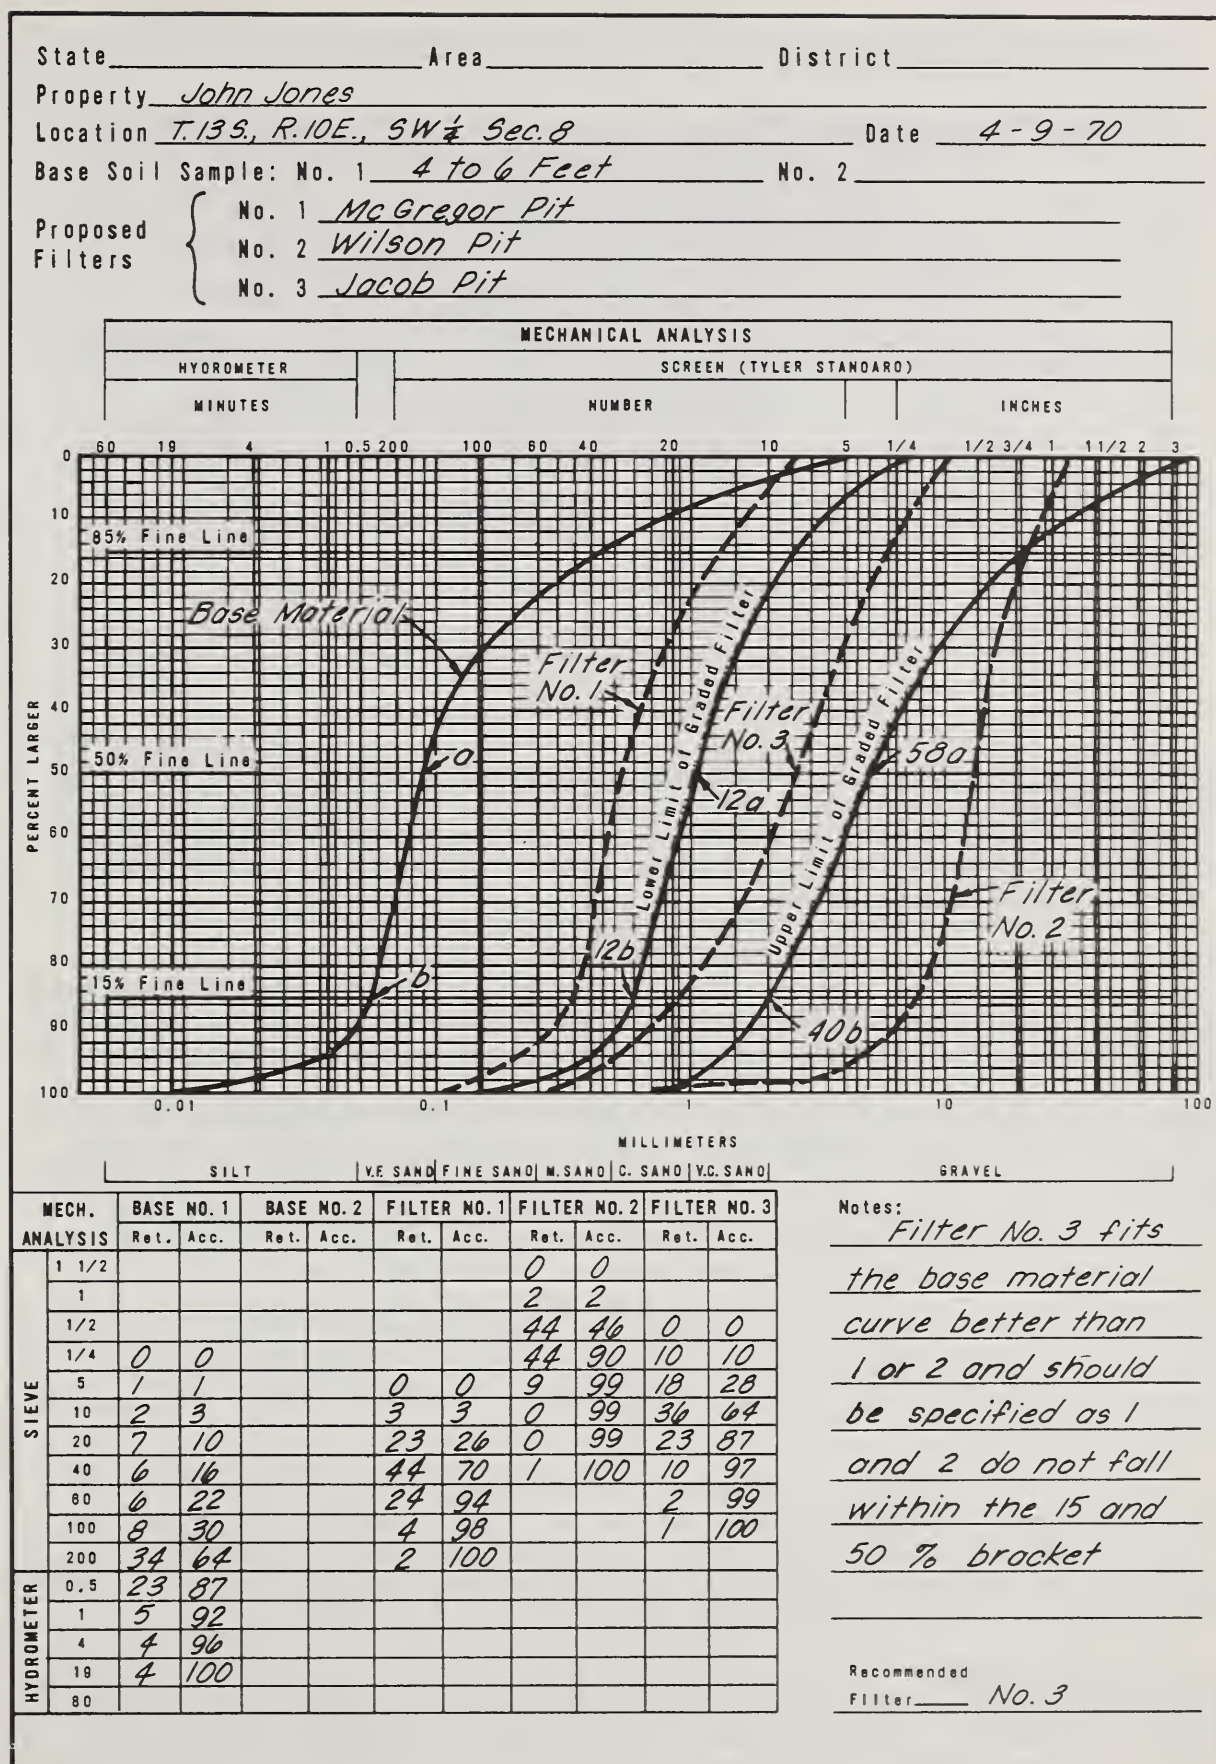 State Area District
Property John Jones
Location T.13S., R.10E., SW ¼ Sec. 8 Date 4-9-70
Base Soil Sample: No. 1 4 to 6 Feet No. 2
Proposed Filters
No. 1 McGregor Pit
No. 2 Wilson Pit
No. 3 Jacob Pit
MECHANICAL ANALYSIS
HYDROMETER SCREEN (TYLER STANDARD)
MINUTES NUMBER INCHES
60 19 4 1 0.5 200 100 60 40 20 10 5 1/4 1/2 3/4 1 1 1/2 2 3
PERCENT LARGER
0
10
85% Fine Line
20
Base Material
30
Filter No. 1
40
Filter No. 3
Lower Limit of Graded Filter
Upper Limit of Graded Filter
50% Fine Line a 58a
50
12a
60
70
Filter No. 2
12b
80
15% Fine Line b
90
40b
100
0.01 0.1 1 10 100
MILLIMETERS
SILT V.F. SAND FINE SAND M. SAND C. SAND V.C. SAND GRAVEL
MECH. ANALYSIS BASE NO. 1 BASE NO. 2 FILTER NO. 1 FILTER NO. 2 FILTER NO. 3
Ret. Acc. Ret. Acc. Ret. Acc. Ret. Acc. Ret. Acc.
SIEVE
1 1/2 0 0
1 2 2
1/2 44 46 0 0
1/4 0 0 44 90 10 10
5 1 1 0 0 9 99 18 28
10 2 3 3 3 0 99 36 64
20 7 10 23 26 0 99 23 87
40 6 16 44 70 1 100 10 97
60 6 22 24 94 2 99
100 8 30 4 98 1 100
200 34 64 2 100
HYDROMETER
0.5 23 87
1 5 92
4 4 96
19 4 100
80
Notes:
Filter No. 3 fits
the base material
curve better than
1 or 2 and should
be specified as 1
and 2 do not fall
within the 15 and
50 % bracket
Recommended
Filter No. 3